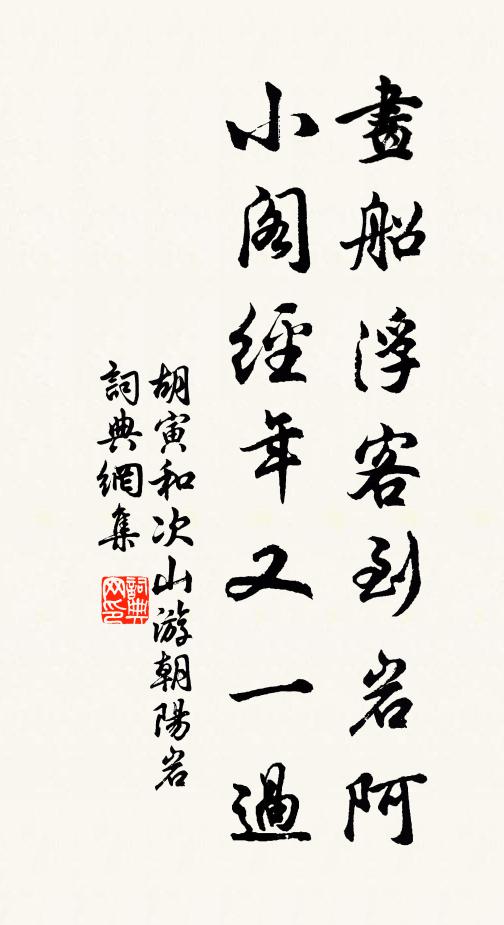 畫船浮客到岩阿
小閣經年又一過
胡寅和次山游朝陽岩
詞典網集
詞典
网印